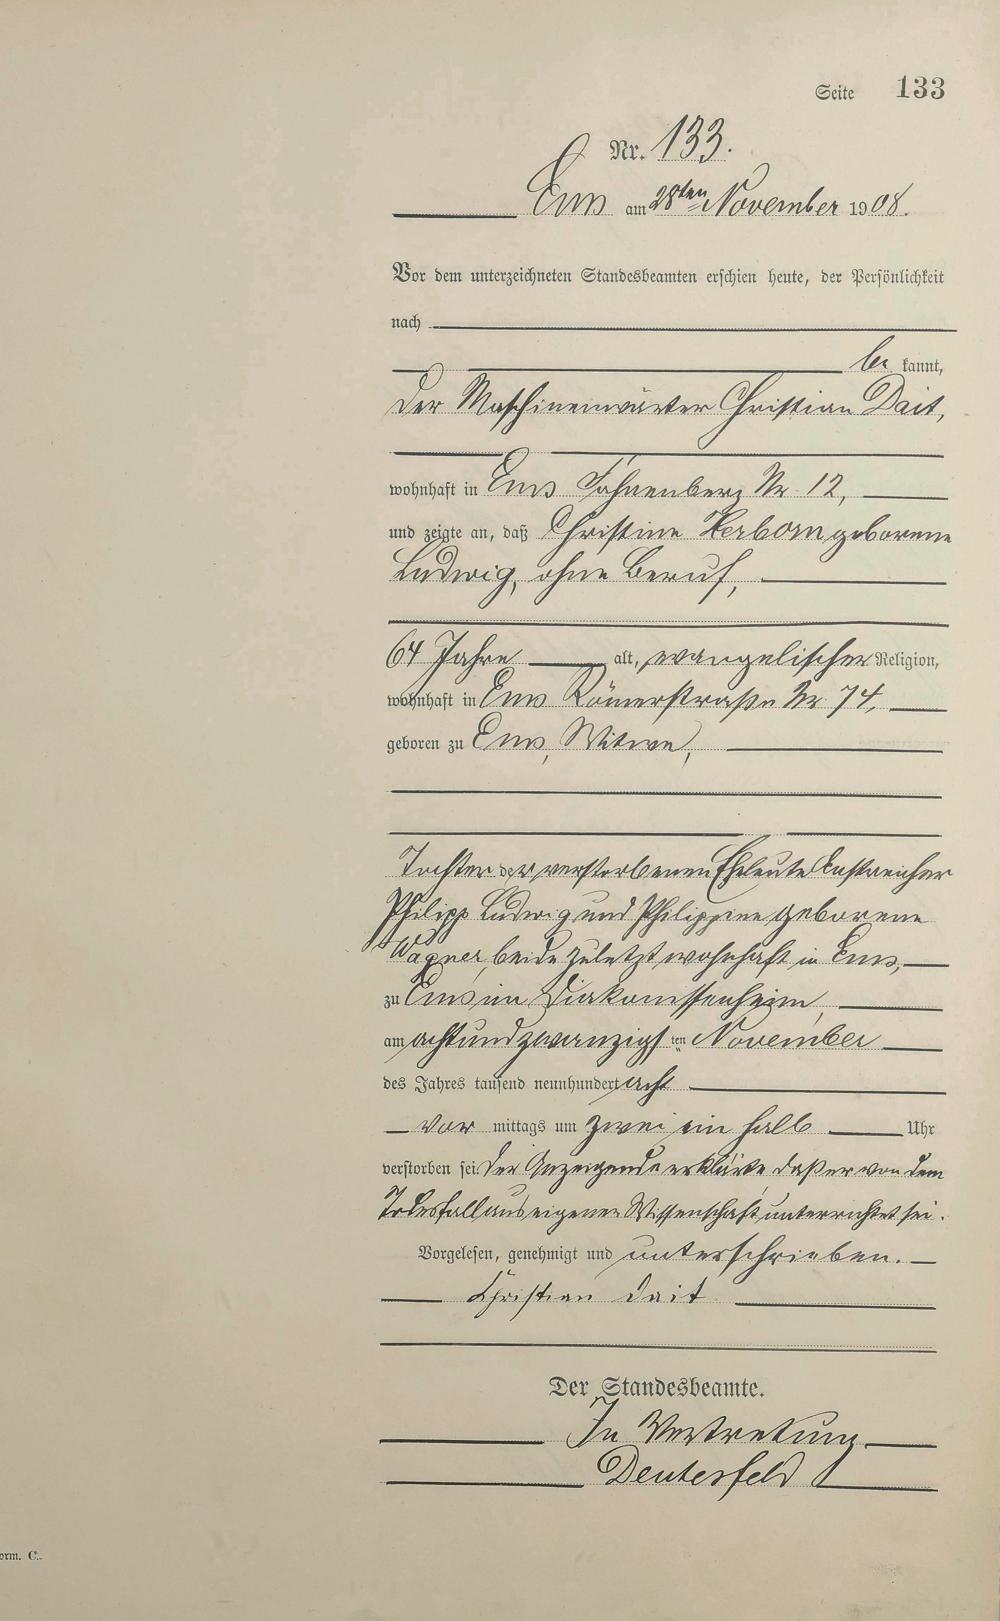 Seite 133
Nr. 133.
Ems am 28ten November 1908.
Vor dem unterzeichneten Standesbeamten erschien heute, der Persönlichkeit
nach
be kannt,
der Maschinenwärter Christian Dait,
wohnhaft in Ems Fahnenberg Nr. 12,
und zeigte an, daß Christine Herborn geborene
Ludwig, ohne Beruf,
64 Jahre alt, evangelischer Religion,
wohnhaft in Ems Römerstraße Nr. 74,
geboren zu Ems, Witwe,
Tochter der verstorbenen Eheleute Anstreicher
Philipp Ludwig und Philippine geborene
Wagner, beide zuletzt wohnhaft in Ems,
zu Ems im Diakonissenheim,
am achtundzwanzigsten November
des Jahres tausend neunhundert acht
vor mittags um zwei ein halb Uhr
verstorben sei. Der Anzeigende erklärte daß er von dem
Todesfall aus eigener Wissenschaft unterrichtet sei.
Vorgelesen, genehmigt und unterschrieben.
Christian Dait
Der Standesbeamte.
In Vertretung
Deuterfeld
orm. C.